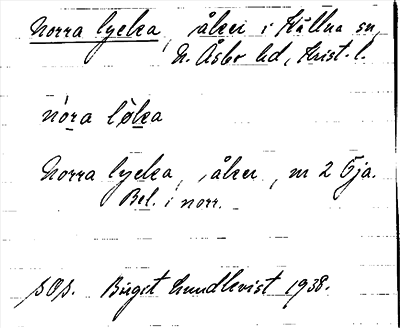 Norra lycka, åker i Källna sn,
N. Åsbo hd, Krist. l.
nóra lø̀ka
Norra lycka, åker, nr 2 Öja.
Bel. i norr.
sOs. Birgit Lundkvist 1938.